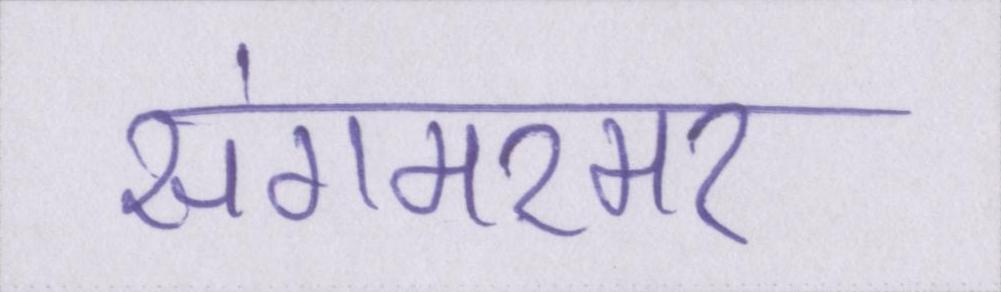 संगमरमर